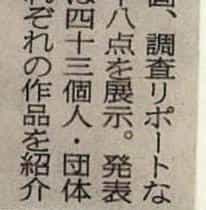 調査リポートな
十八点を展示。発表
は四十三個人・団体
れぞれの作品を紹介